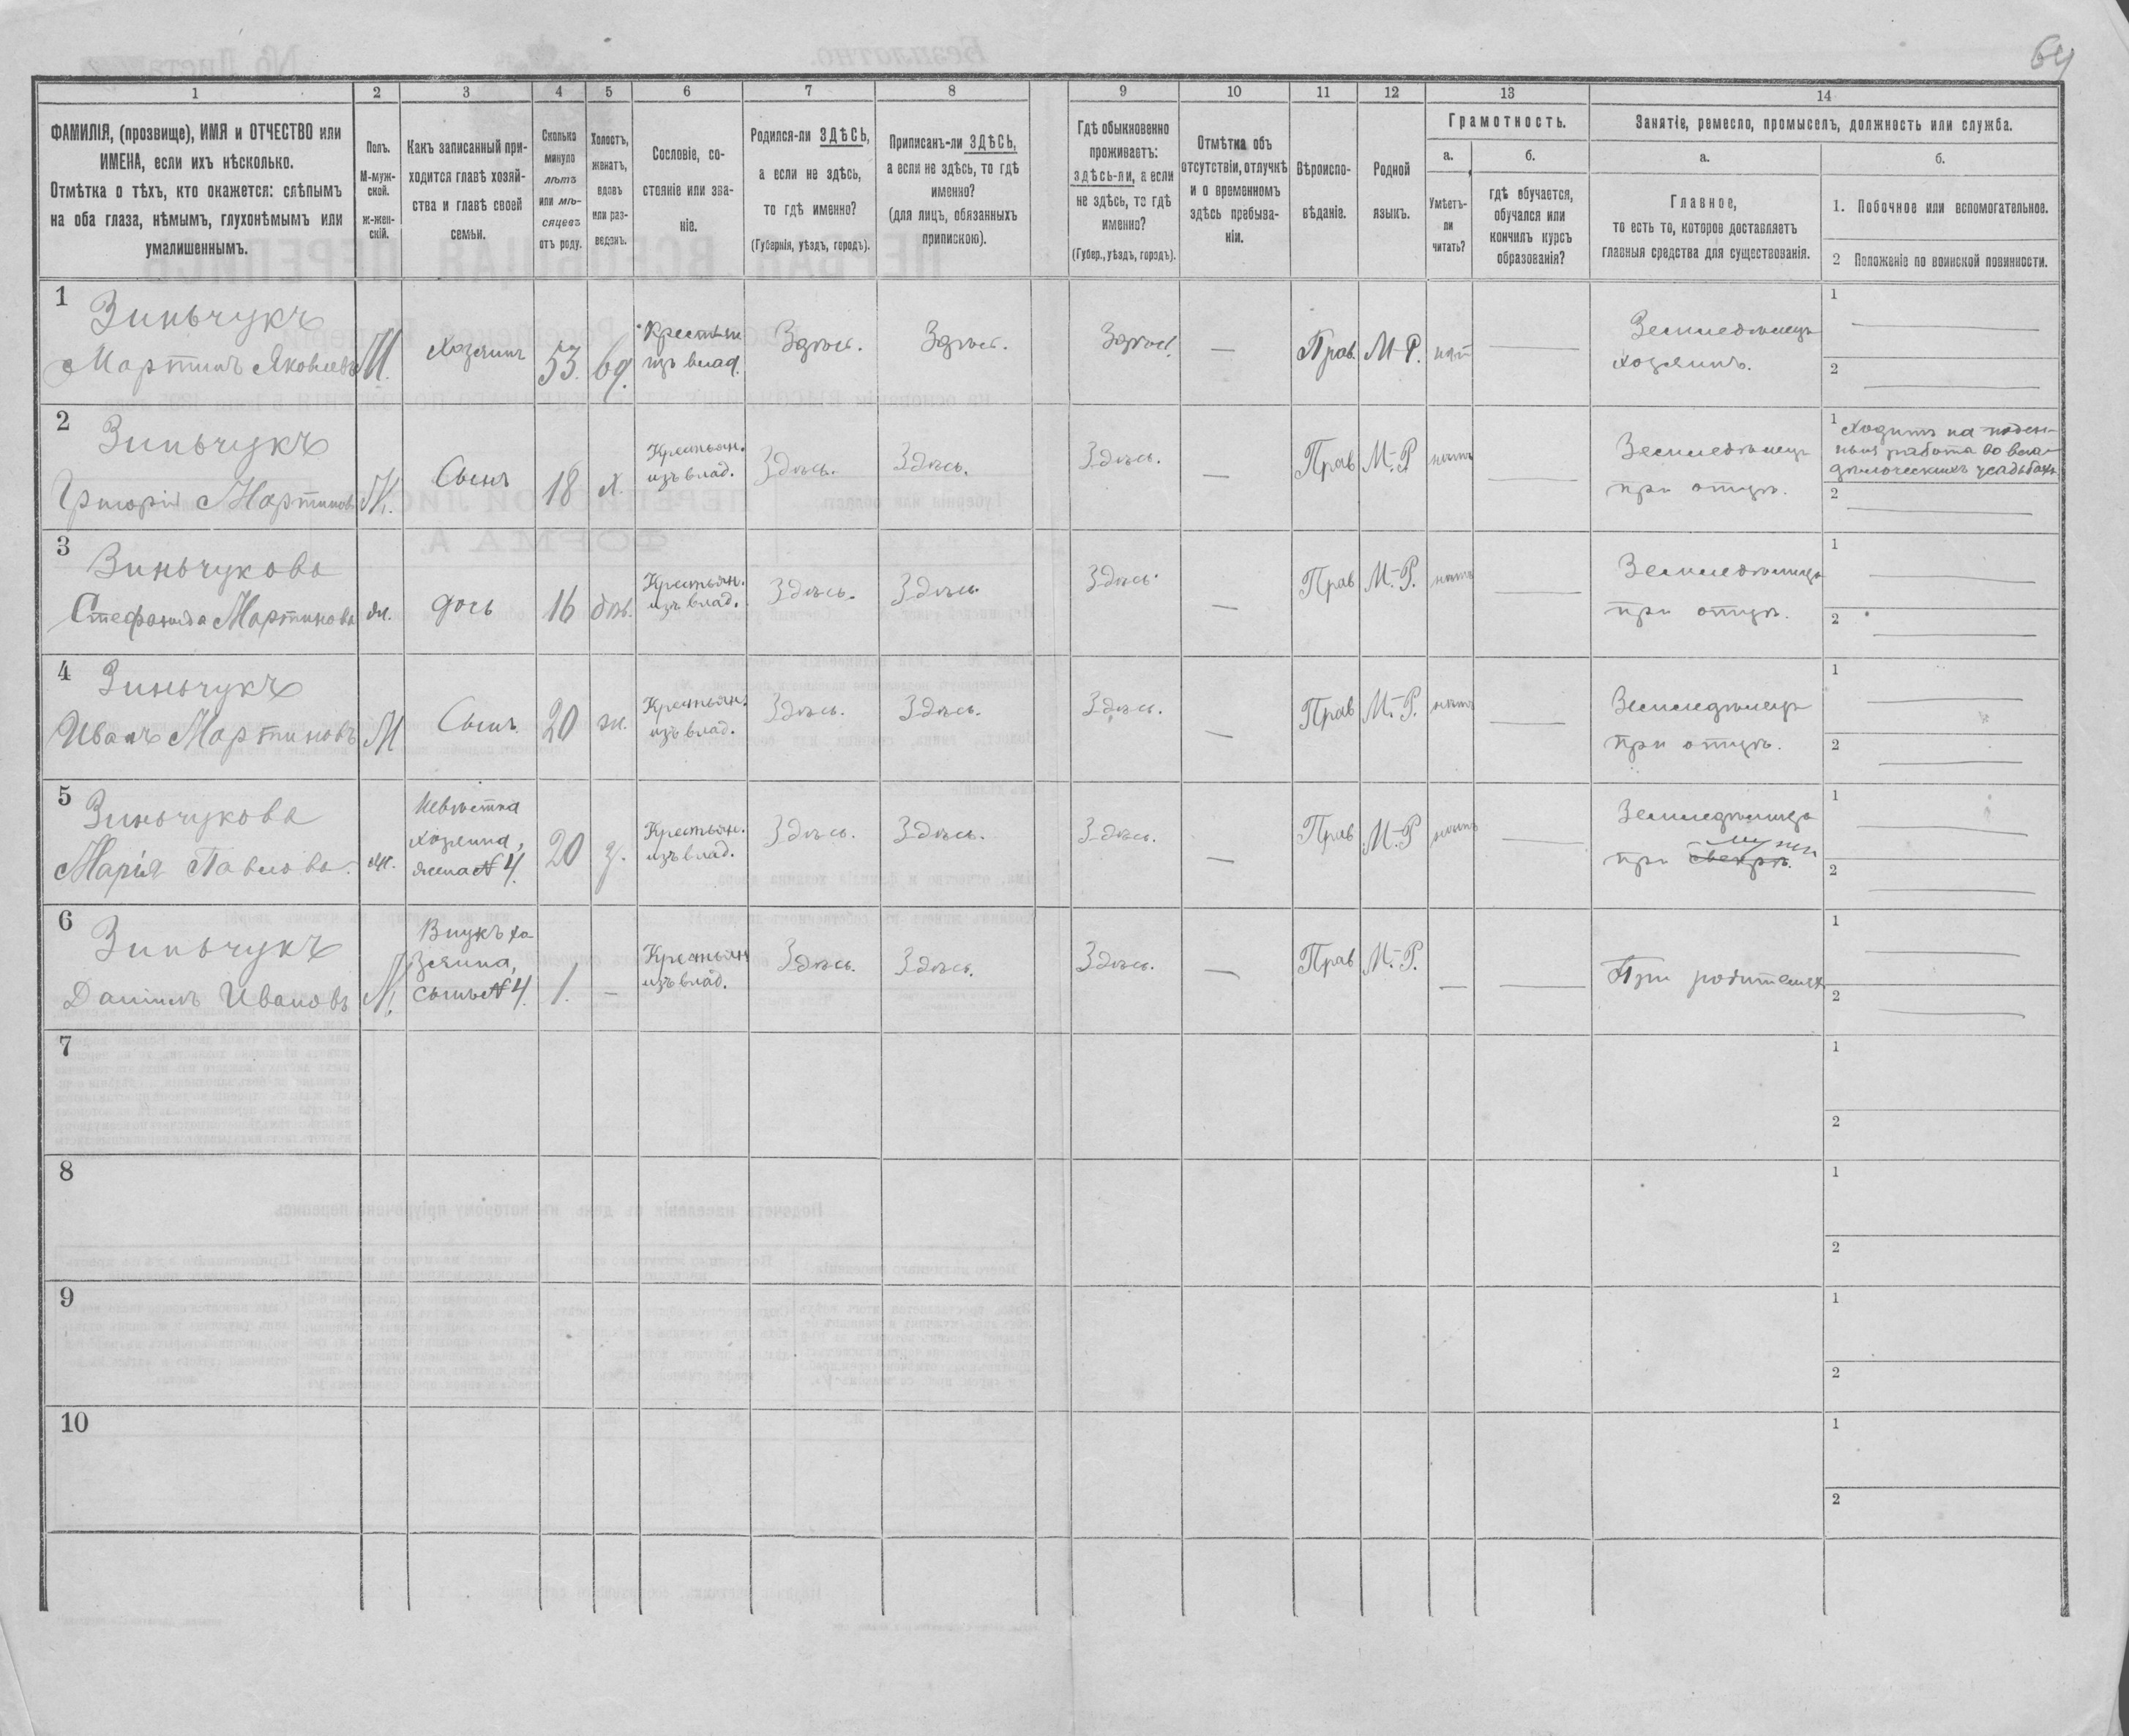 64
1
2
3
4
5
6
7
8
9
10
11
12
13
14
ФАМИЛІЯ, (прозвище), ИМЯ и ОТЧЕСТВО или
ИМЕНА, если ихъ нѣсколько.
Отмѣтка о тѣхъ, кто окажется: слѣпымъ
на оба глаза, нѣмымъ, глухонѣмымъ или
умалишеннымъ.
Полъ.
М-муж-
ской.
ж-жен-
скій.
Какъ записанный при-
ходится главѣ хозяй-
ства и главѣ своей
семьи.
Сколько
минуло
лѣтъ
или мѣ-
сяцевъ
отъ роду.
Холостъ,
женатъ,
вдовъ
или раз-
веденъ.
Сословіе, со-
стояніе или зва-
ніе.
Родился-ли ЗДѢСЬ,
а если не здѣсь,
то гдѣ именно?
(Губернія, уѣздъ, городъ).
Приписанъ-ли ЗДѢСЬ,
а если не здѣсь, то гдѣ
именно?
(для лицъ, обязанныхъ
припискою).
Гдѣ обыкновенно
проживаетъ:
здѣсь-ли, а если
не здѣсь, то гдѣ
именно?
(Губер., уѣздъ, городъ).
Отмѣтка объ
отсутствіи, отлучкѣ
и о временномъ
здѣсь пребыва-
ніи.
Вѣроиспо-
вѣданіе.
Родной
языкъ.
Грамотность.
а.
Умѣетъ-
ли
читать?
б.
гдѣ обучается,
обучался или
кончилъ курсъ
образованія?
Занятіе, ремесло, промыселъ, должность или служба.
а.
Главное,
то есть то, которое доставляетъ
главныя средства для существованія.
б.
1. Побочное или вспомогательное.
2 Положеніе по воинской повинности.
1
Зиньчукъ
Мартинъ Яковлевъ
М.
Хозяинъ
53.
вд.
Крестьян
изъ влад.
Здѣсь.
Здѣсь.
Здѣсь.
—
Прав.
М-Р.
нѣт
Земледѣлецъ
хозяинъ.
1
2
2
Зиньчукъ
Григорій Мартиновъ
М.
Сынъ
18
х.
Крестьян.
изъ влад.
Здѣсь.
Здѣсь.
Здѣсь.
—
Прав
М.-Р
нѣтъ
Земледѣлецъ
при отцѣ.
1 Ходитъ на поден-
ныя работа во вла-
дѣльческихъ усадьбахъ
2
3
Зиньчукова
Стефанида Мартинова
ж.
дочь
16
дѣв.
Крестьян.
изъ влад.
Здѣсь.
Здѣсь
Здѣсь.
—
Прав
М.-Р.
нѣтъ
Земледѣлица
при отцѣ.
1
2
4
Зиньчукъ
Иванъ Мартиновъ
М
Сынъ.
20
ж.
Крестьян.
изъ влад.
Здѣсь.
Здѣсь.
Здѣсь.
—
Прав
М.-Р.
нѣтъ
Земледѣлецъ
при отцѣ.
1
2
5
Зиньчукова
Марія Павлова.
ж.
Невѣстка
хозяина,
жена № 4.
20
з.
Крестьян.
изъ влад.
Здѣсь.
Здѣсь.
Здѣсь.
—
Прав
М.-Р
нѣтъ
Земледѣлица
мужѣ
при свекрѣ.
1
2
6
Зиньчукъ
Даніилъ Ивановъ
М.
Внукъ хо-
зяина,
сынъ № 4.
1.
—
Крестьян
изъ влад.
Здѣсь.
Здѣсь.
Здѣсь.
—
Прав
М.-Р.
—
При родителяхъ
1
2
7
1
2
8
1
2
9
1
2
10
1
2